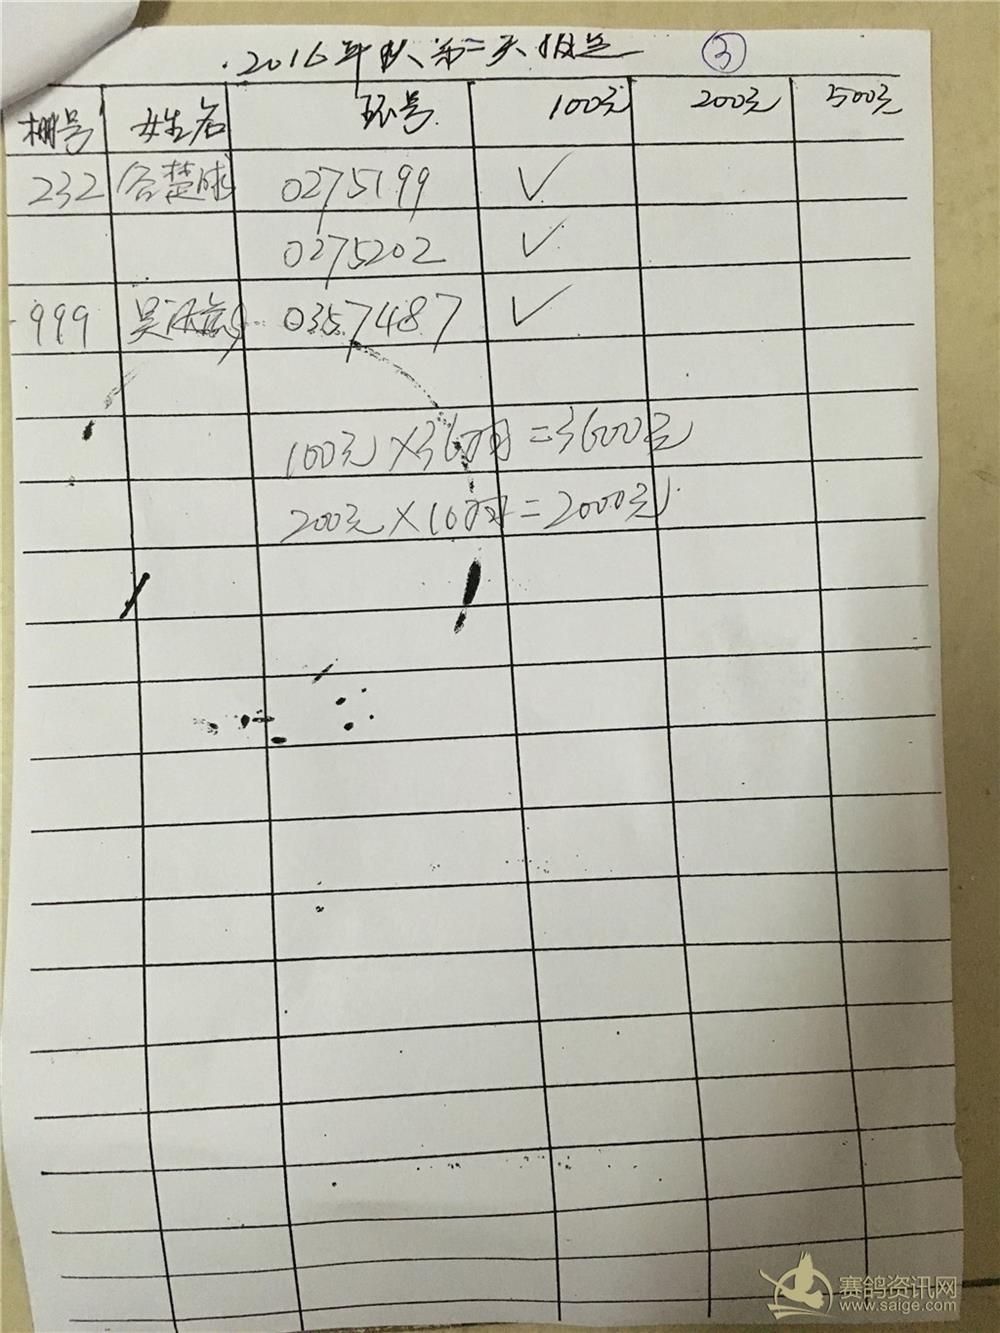 2016年 第二天指定 ③
棚号 姓名 环号 100元 200元 500元
232 谷楚成 0275199 ✓
0275202 ✓
999 吴 0357487 ✓
100元×36羽=3600元
200元×10羽=2000元
赛鸽资讯网
www.saige.com